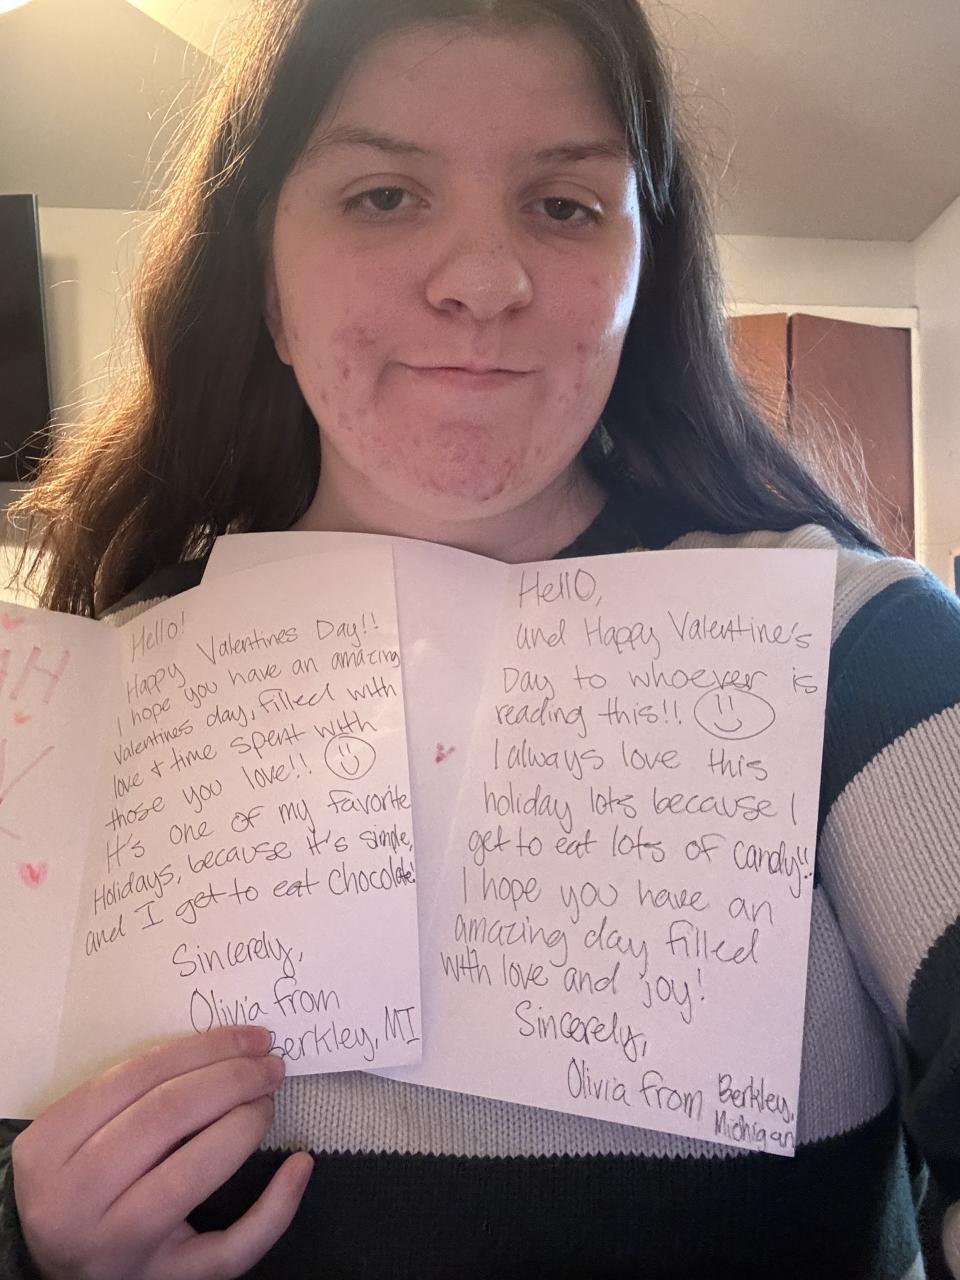 Hello!
Happy Valentines Day!!
I hope you have an amazing
Valentines day, filled with
love + time spent with
those you love!!
It's one of my favorite
Holidays, because it's simple,
and I get to eat chocolate!
Sincerely,
Olivia from
Berkley, MI
Hello,
and Happy Valentine's
Day to whoever is
reading this!!
I always love this
holiday lots because I
get to eat lots of candy!!
I hope you have an
amazing day filled
with love and joy!
Sincerely,
Olivia from Berkley,
Michigan